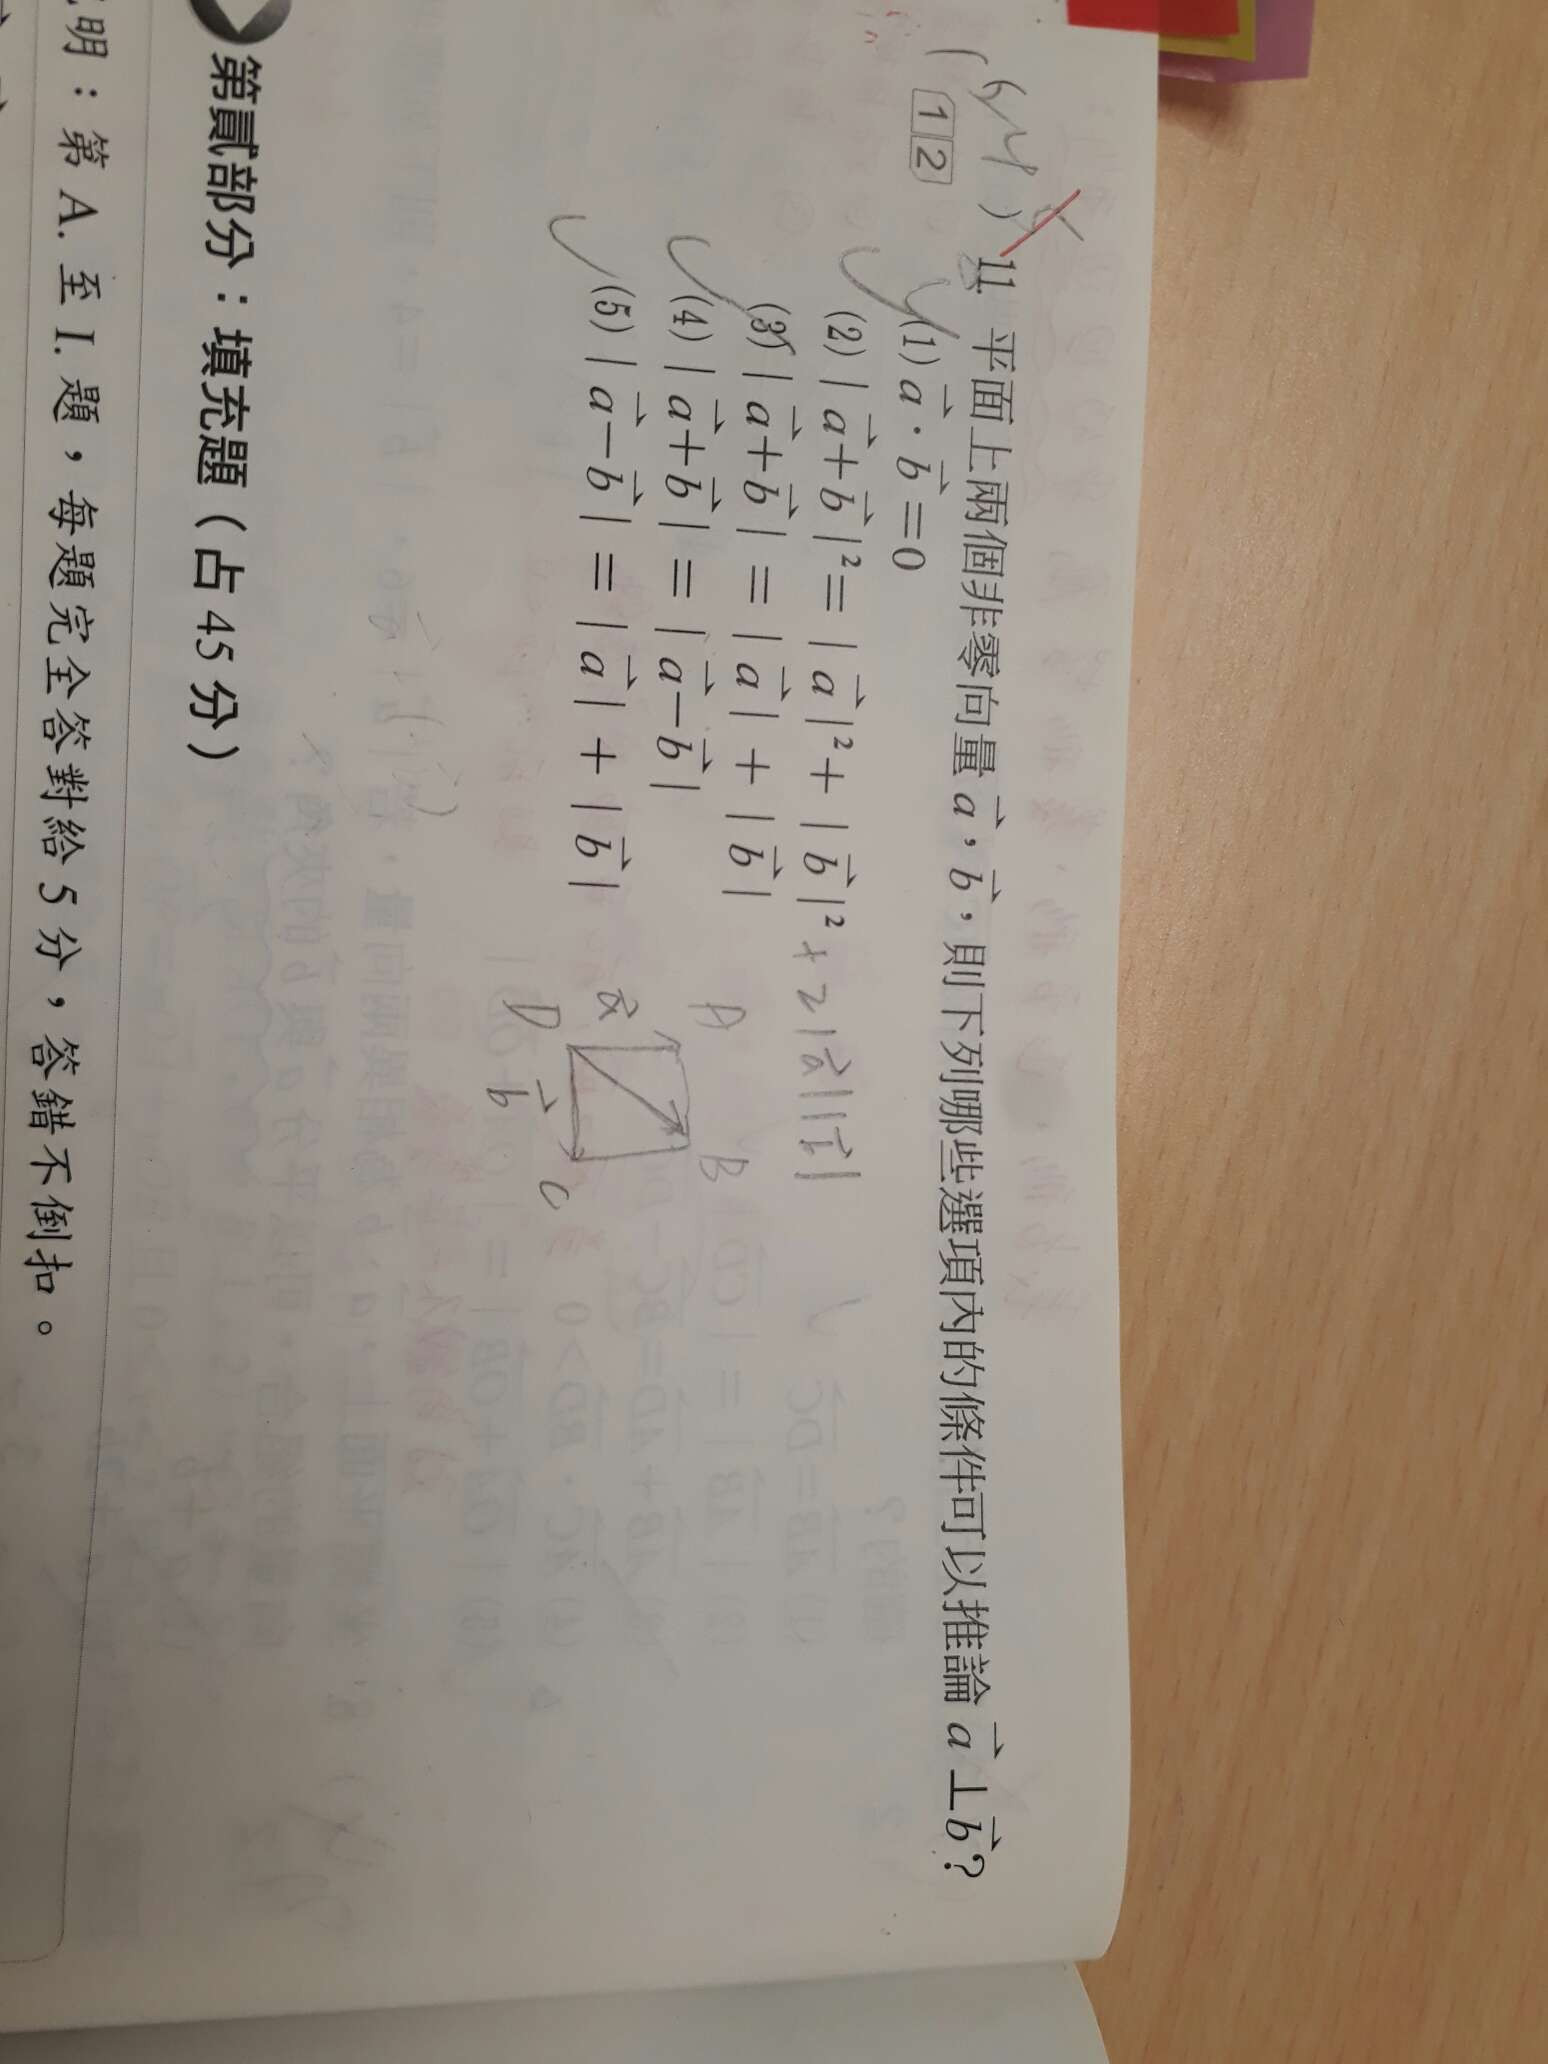 11. 平面上兩個非零向量 a⃗，b⃗，則下列哪些選項內的條件可以推論 a⃗⊥b⃗？
12
(1) a⃗·b⃗=0
(2)｜a⃗+b⃗｜²=｜a⃗｜²+｜b⃗｜² +2|a⃗||b⃗|
(3)｜a⃗+b⃗｜=｜a⃗｜+｜b⃗｜
(4)｜a⃗+b⃗｜=｜a⃗−b⃗｜
(5)｜a⃗−b⃗｜=｜a⃗｜+｜b⃗｜
A B
a⃗
D C
b⃗
第貳部分：填充題（占 45 分）
明：第 A. 至 I. 題，每題完全答對給 5 分，答錯不倒扣。